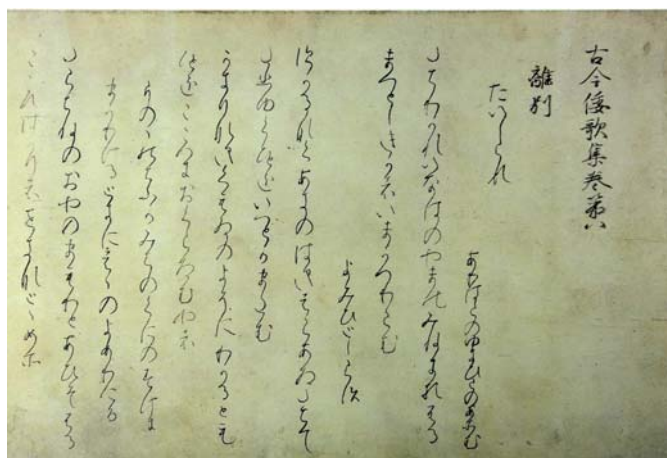 古今倭歌集巻第八
離別
たいしらす
ありはらのゆきひらのあそむ
たちわかれいなはのやまのみねにおふる
まつとしきかはいまかへりこむ
よみひとしらす
すかるなくあきのはきはらあさたちて
たひゆくひとをいつとかまたむ
かきりなきくもゐのよそにわかるとも
ひとをこゝろにおくらさむやは
をのゝちふるかみちのくにのすけに
まかりけるときにはゝのよめりける
たらちねのおやのまもりとあひそふる
こゝろはかりはせきなとゝめそ